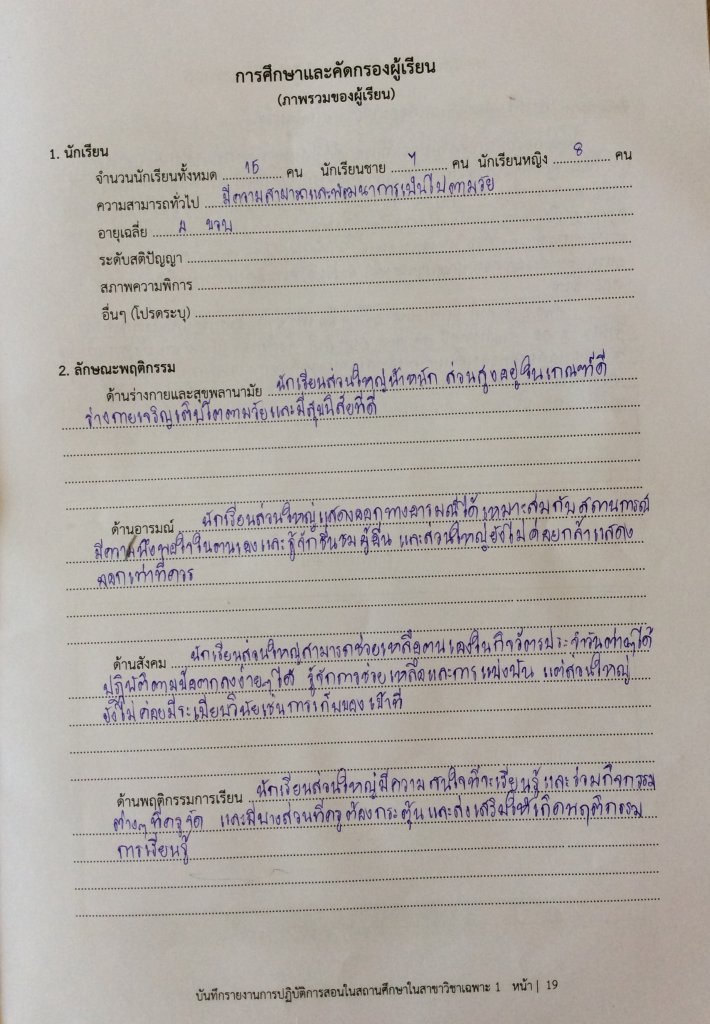 การศึกษาและคัดกรองผู้เรียน
(ภาพรวมของผู้เรียน)
1. นักเรียน
จำนวนนักเรียนทั้งหมด 15 คน นักเรียนชาย 7 คน นักเรียนหญิง 8 คน
ความสามารถทั่วไป มีความสามารถและพัฒนาการเป็นไปตามวัย
อายุเฉลี่ย 4 ขวบ
ระดับสติปัญญา
สภาพความพิการ
อื่นๆ (โปรดระบุ)
2. ลักษณะพฤติกรรม
ด้านร่างกายและสุขพลานามัย นักเรียนส่วนใหญ่น้ำหนัก ส่วนสูงอยู่ในเกณฑ์ดี
ร่างกายเจริญเติบโตตามวัยและมีสุขนิสัยที่ดี
ด้านอารมณ์ นักเรียนส่วนใหญ่แสดงออกทางอารมณ์ได้เหมาะสมกับสถานการณ์
มีความพึงพอใจในตนเองและรู้จักชื่นชมผู้อื่น และส่วนใหญ่ยังไม่ค่อยกล้าแสดง
ออกเท่าที่ควร
ด้านสังคม นักเรียนส่วนใหญ่สามารถช่วยเหลือตนเองในกิจวัตรประจำวันต่างๆได้
ปฏิบัติตามข้อตกลงง่ายๆได้ รู้จักการช่วยเหลือและการแบ่งปัน แต่ส่วนใหญ่
ยังไม่ค่อยมีระเบียบวินัยเช่นการเก็บของเข้าที่
ด้านพฤติกรรมการเรียน นักเรียนส่วนใหญ่มีความสนใจที่จะเรียนรู้และร่วมกิจกรรม
ต่างๆที่ครูจัด และมีบางส่วนที่ครูต้องกระตุ้นและส่งเสริมให้เกิดพฤติกรรม
การเรียนรู้
บันทึกรายงานการปฏิบัติการสอนในสถานศึกษาในสาขาวิชาเฉพาะ 1 หน้า | 19